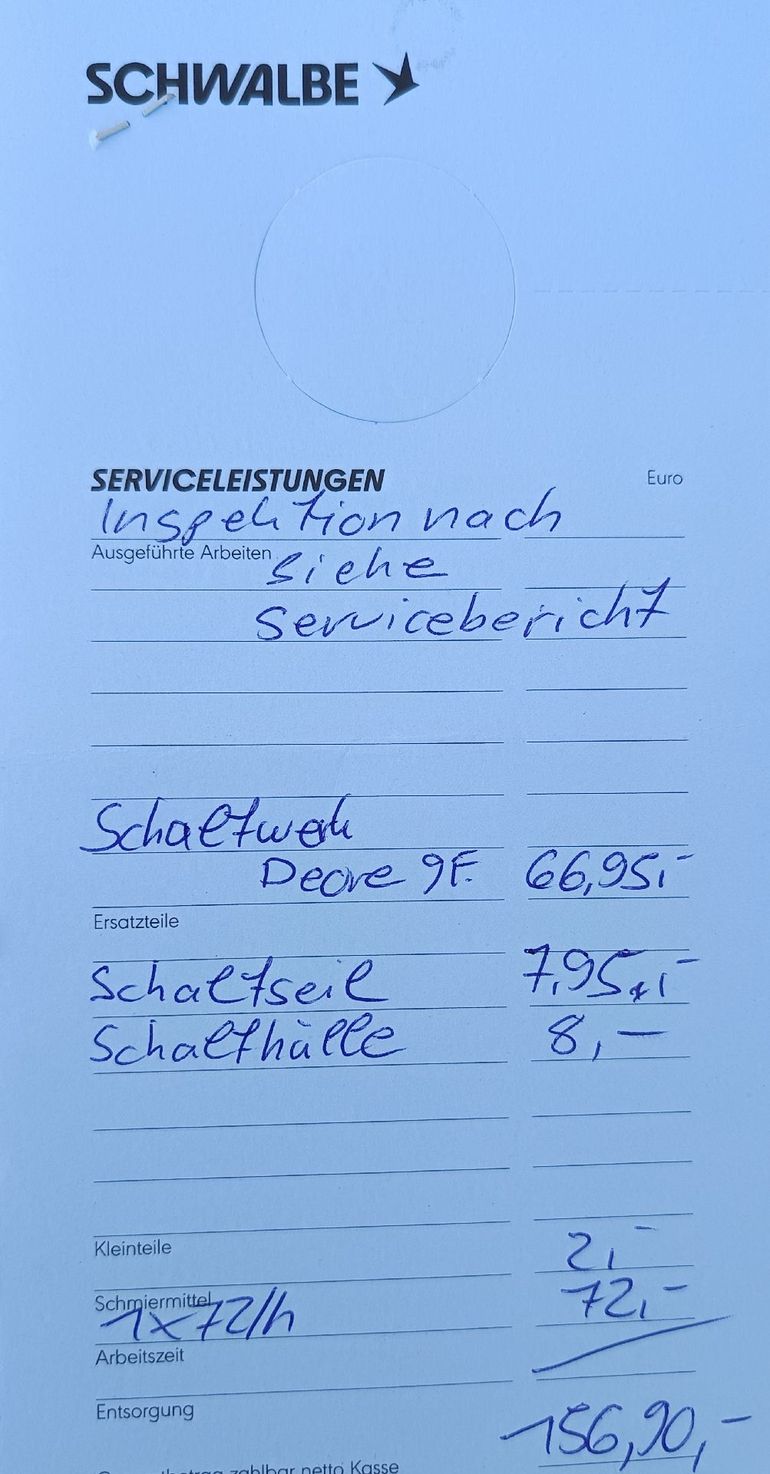 SCHWALBE
SERVICELEISTUNGEN Euro
Inspektion nach
Ausgeführte Arbeiten
siehe
Servicebericht
Schaltwerk
Deore 9F. 66,95,-
Ersatzteile
Schaltseil 7,95,-
Schalthülle 8,-
Kleinteile 2,-
Schmiermittel 72,-
1x72/h
Arbeitszeit
Entsorgung
156,90,-
zahlbar netto Kasse